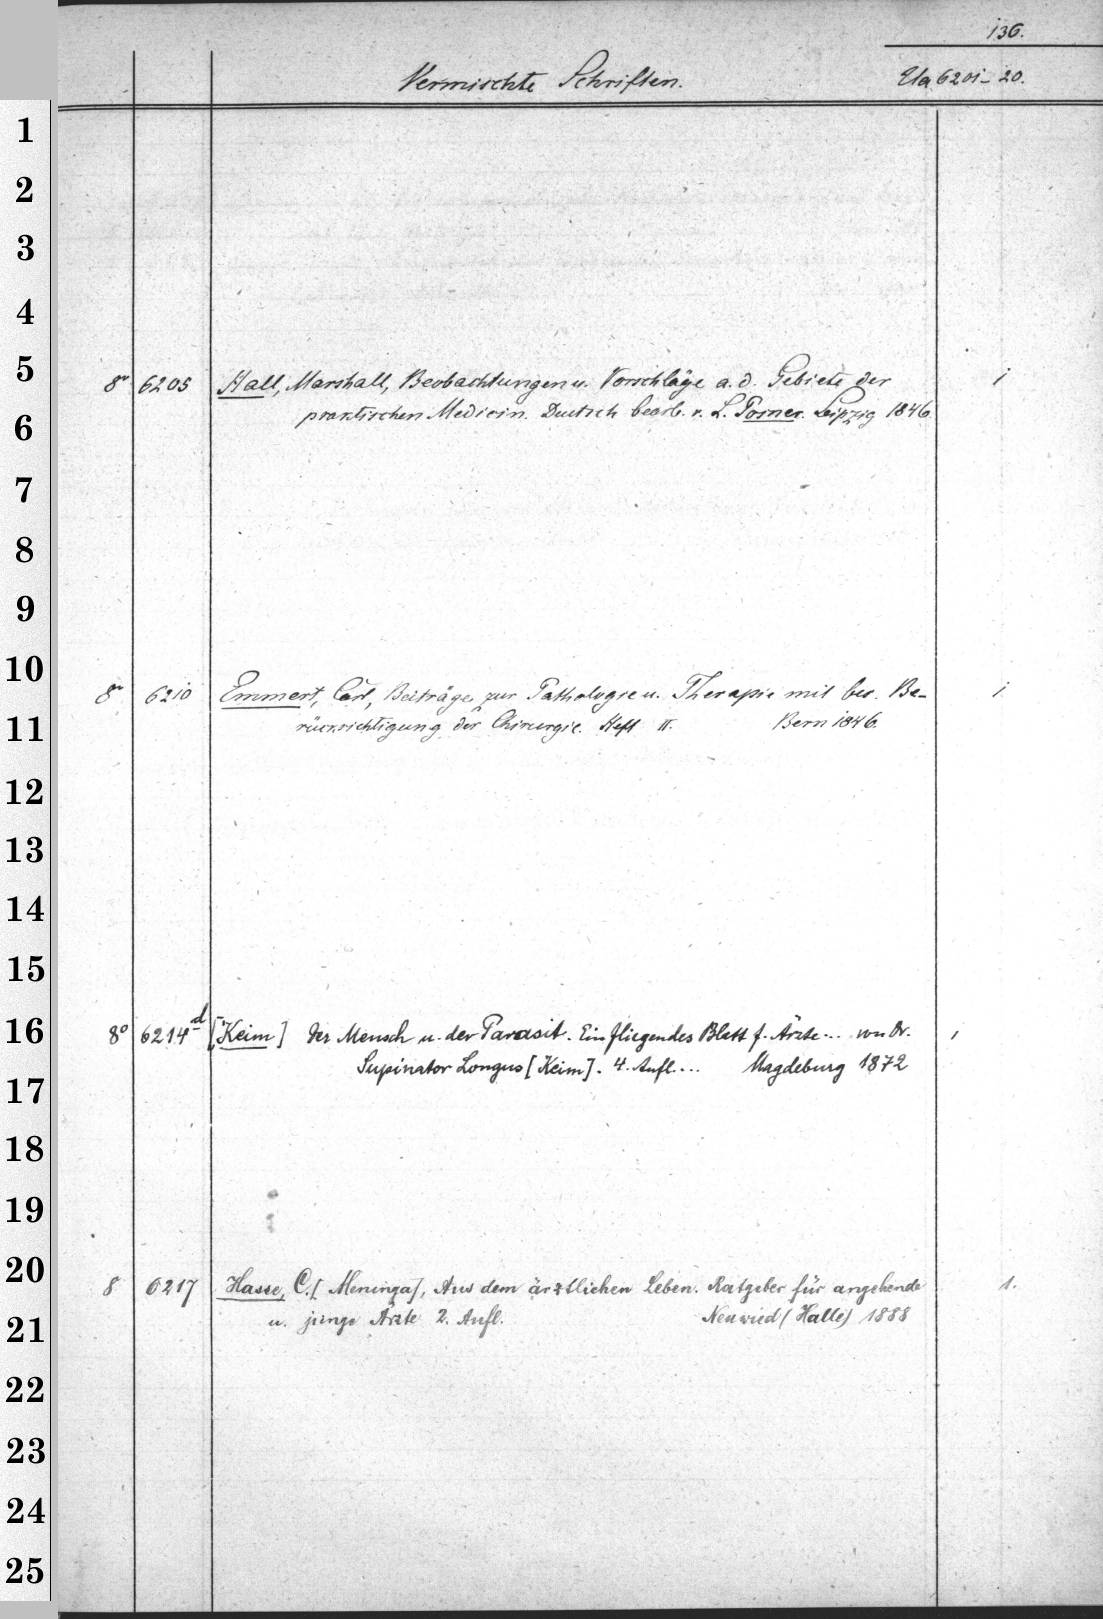 136.
Vermischte Schriften. Ela 6201-20.
1
2
3
4
5
8° 6205 Hall, Marshall, Beobachtungen u. Vorschläge a. d. Gebiete der 1
6
praktischen Medicin. Deutsch bearb. v. L. Posner. Leipzig 1846
7
8
9
10
8° 6210 Emmert, Carl, Beiträge zur Pathologie u. Therapie mit bes. Be- 1
11
rücksichtigung der Chirurgie. Heft II. Bern 1846.
12
13
14
15
16
8° 6214d [Keim] Der Mensch u. der Parasit. Ein fliegendes Blatt f. Ärzte... von Dr. 1
Supinator Longus [Keim]. 4. Aufl.... Magdeburg 1872
17
18
19
20
8 6217 Hasse, C. [Meninga], Aus dem ärztlichen Leben. Ratgeber für angehende 1.
21
u. junge Ärzte 2. Aufl. Neuwied (Halle) 1888
22
23
24
25